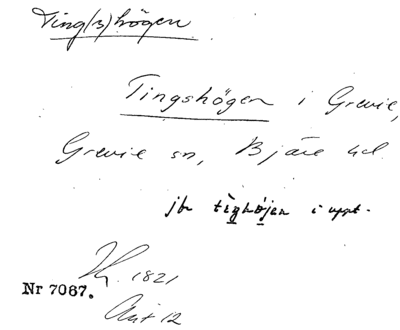 Ting(s)högen
Tingshögen i Grevie,
Grevie sn, Bjäre hd.
jbr tìŋhö̀jen i uppt.
1821
Nr 7067.
Ant 12